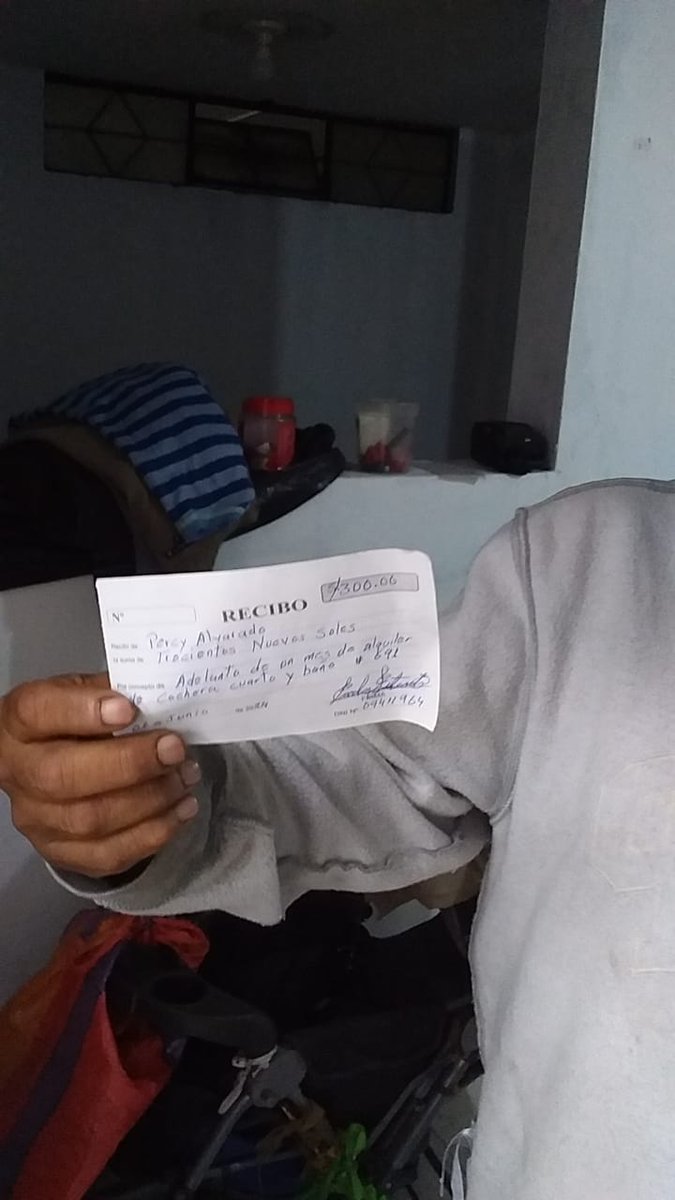 Nº RECIBO S/300.00
Recibí de Percy Alvarado
la suma de Trecientos Nuevos Soles
Por concepto de Adelanto de un mes de alquiler
de cochera cuarto y baño # 691
Junio de 2024 DNI Nº 09411964